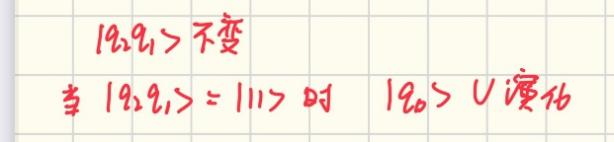 |q₂q₁> 不变
当 |q₂q₁> = |11> 时 |q₀> U 演化